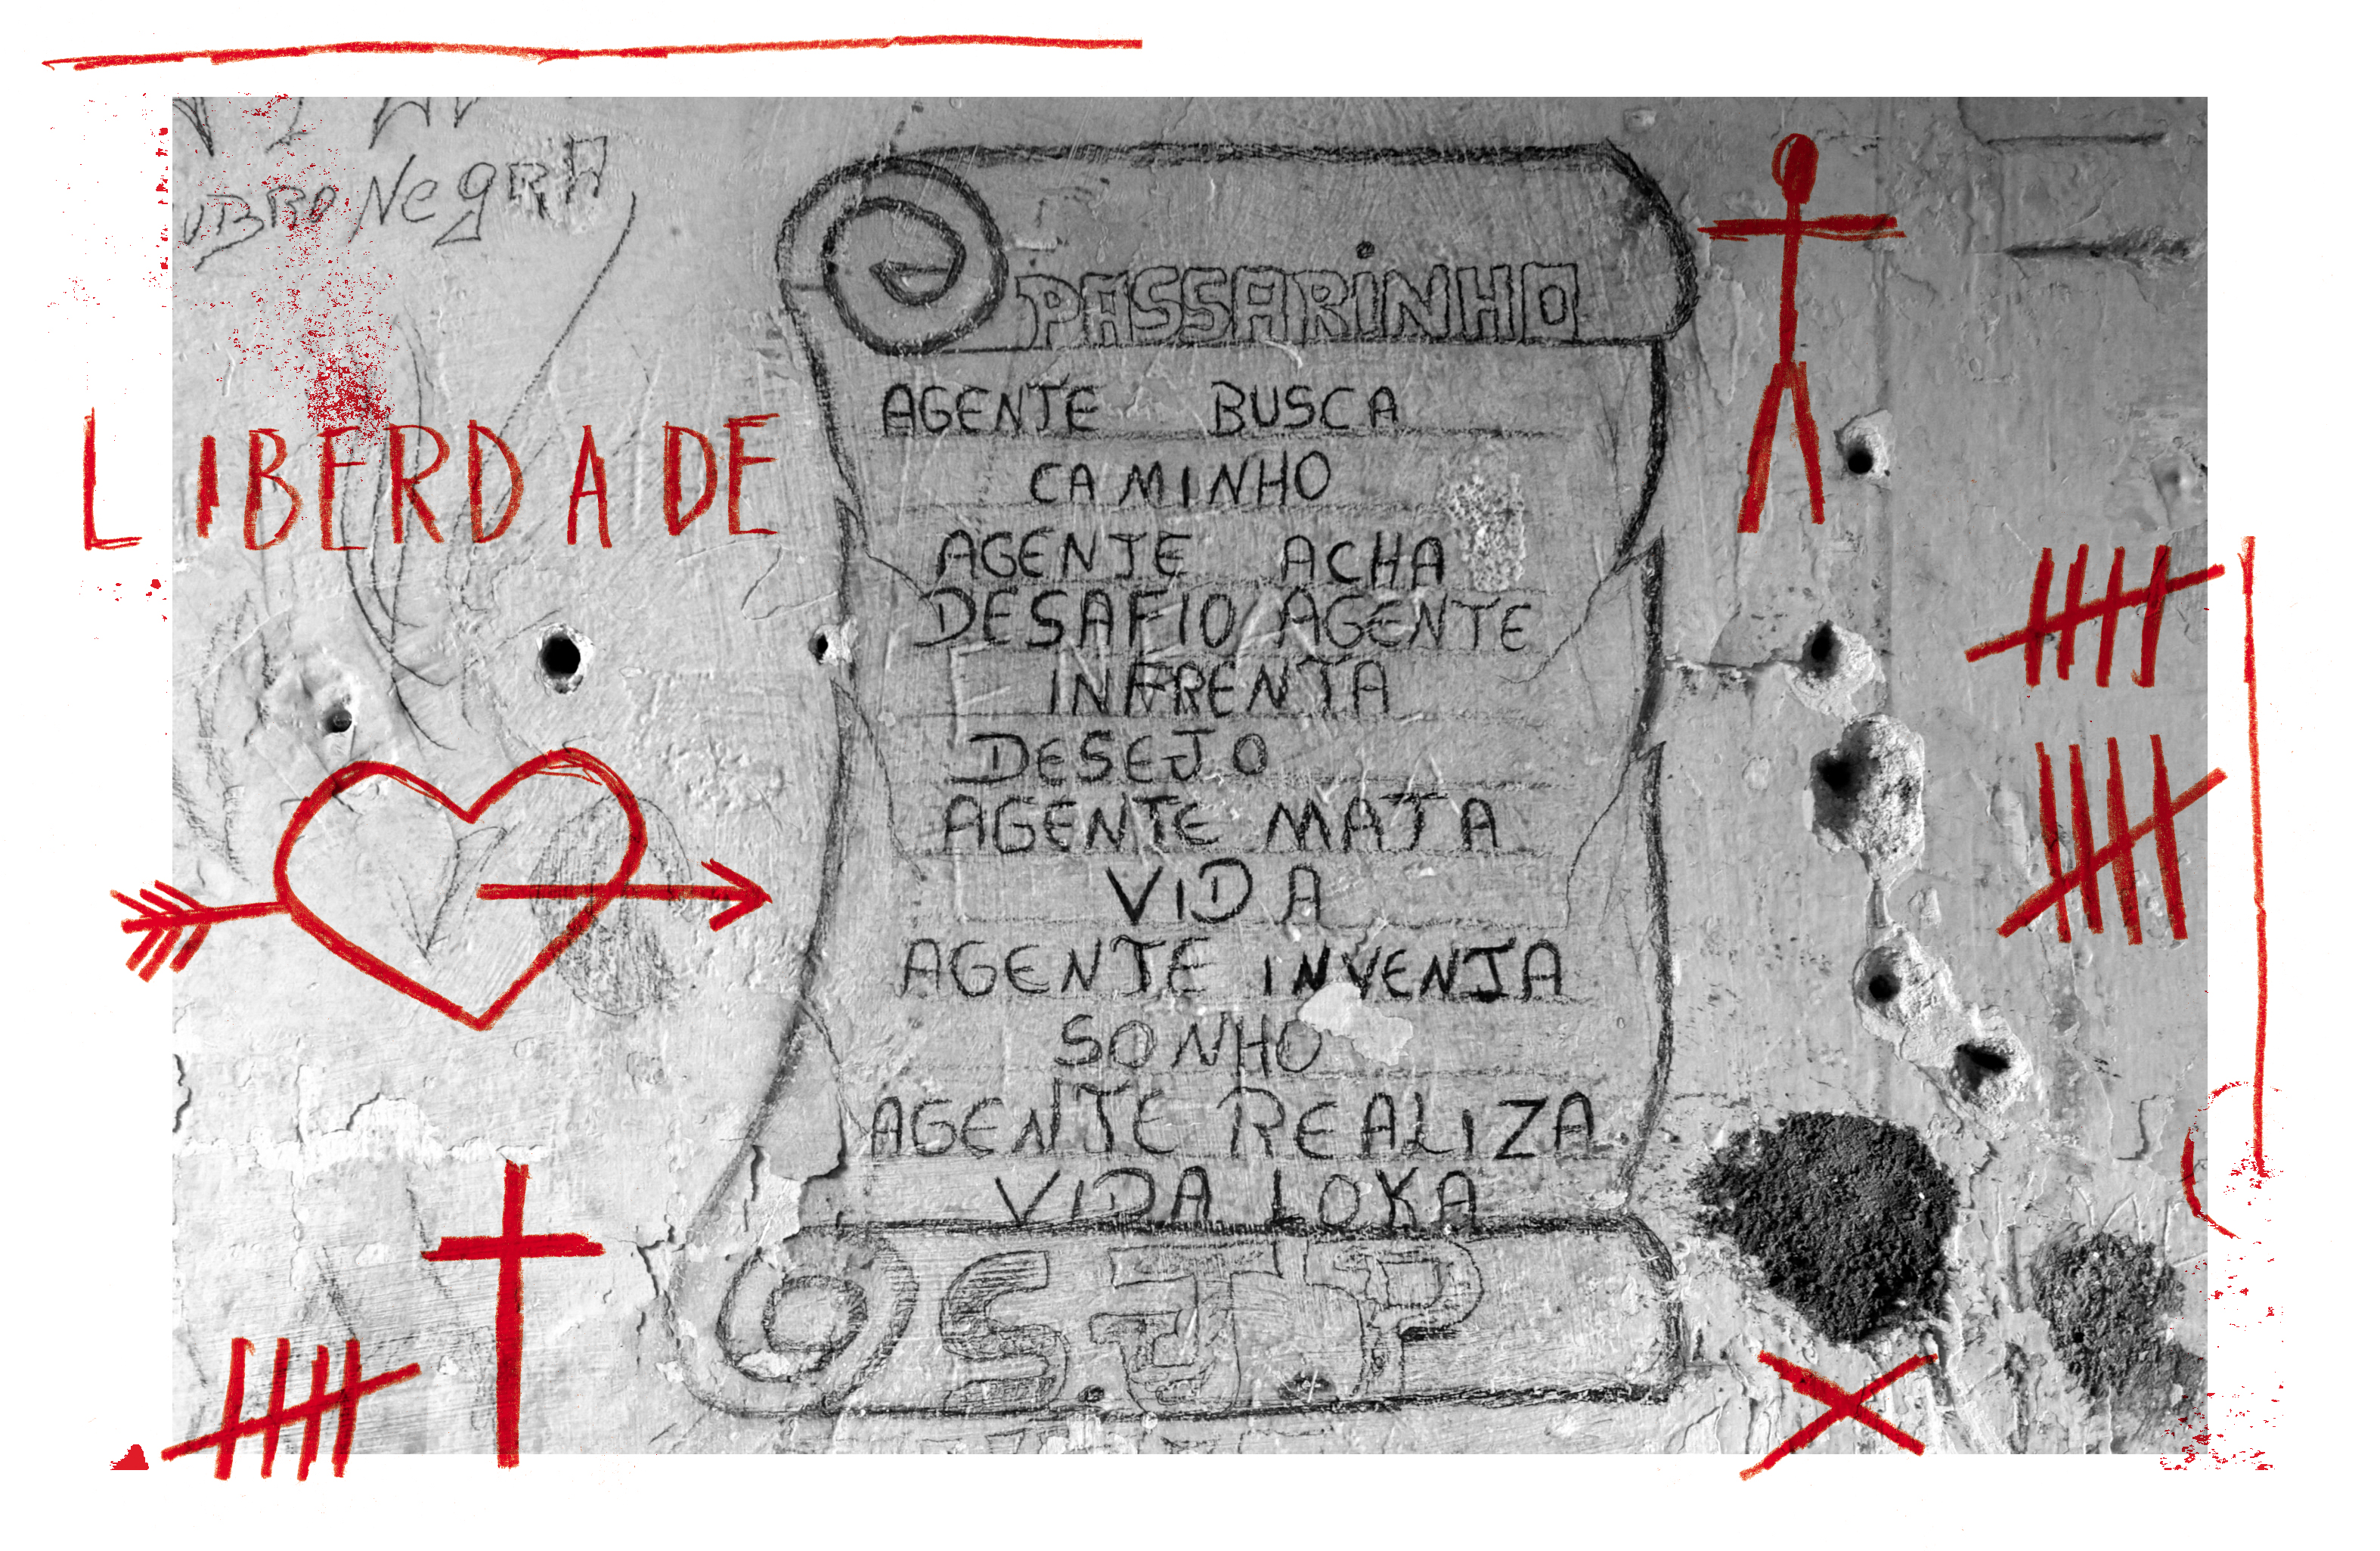 Negra
PASSARiNHO
AGENTE BUSCA
CAMINHO
AGENTE ACHA
DESAFIO AGENTE
INFRENTA
DESEJO
AGENTE MATA
VIDA
AGENTE INVENTA
SONHO
AGENTE REALIZA
VIDA LOKA
LIBERDADE